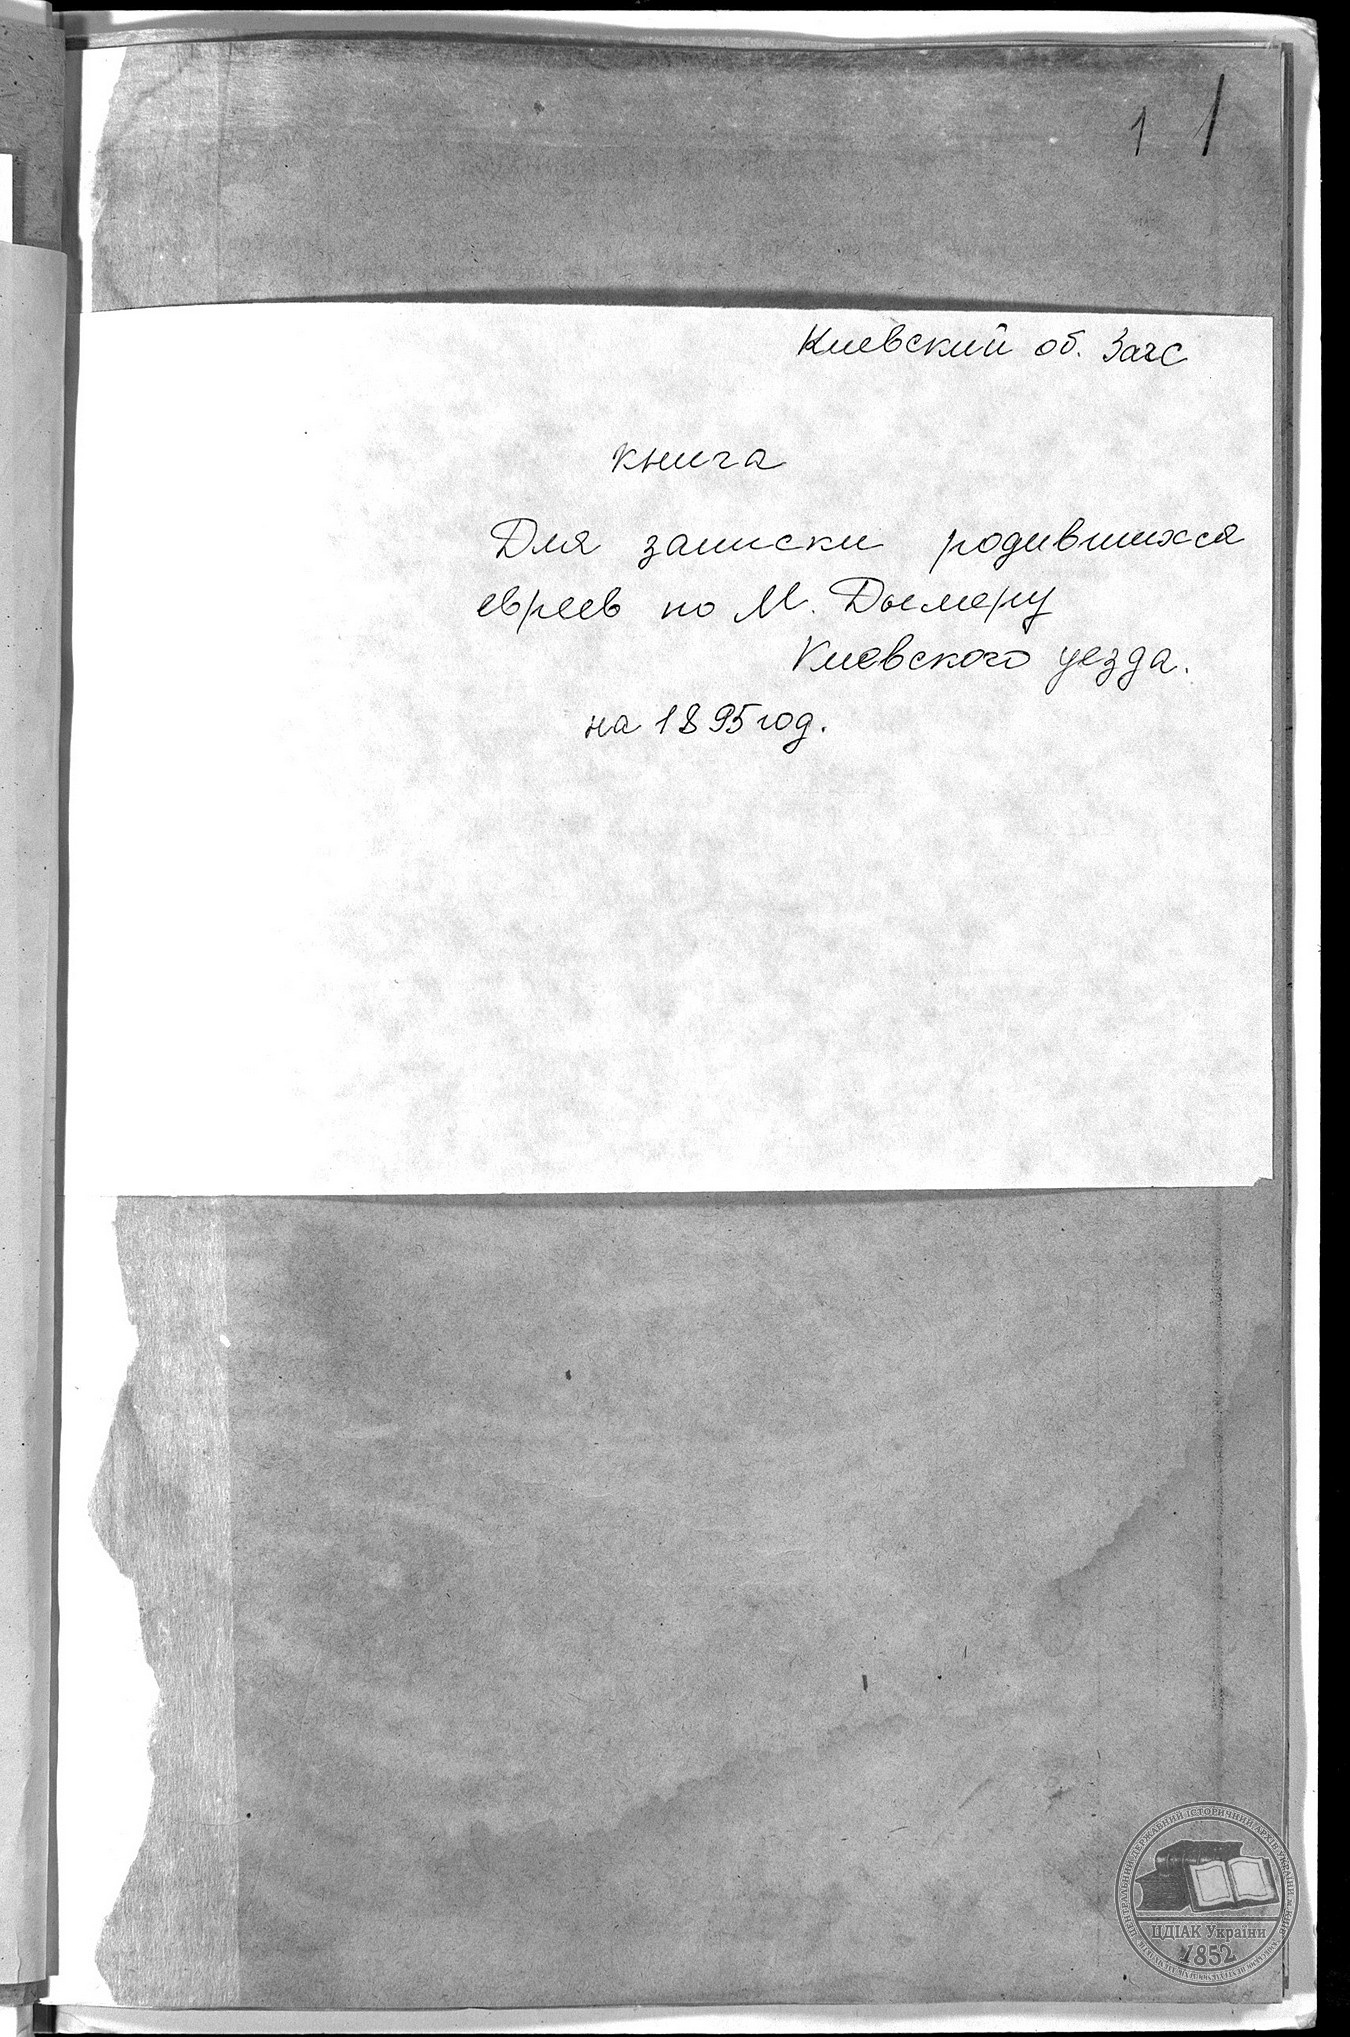 1 1
Киевский об. Загс
книга
Для записки родившихся
евреев по М. Дымеру
Киевского уезда.
на 1895 год.
ЦЕНТРАЛЬНИЙ ДЕРЖАВНИЙ ІСТОРИЧНИЙ АРХІВ УКРАЇНИ, м. КИЇВ
ЦДІАК України
1852